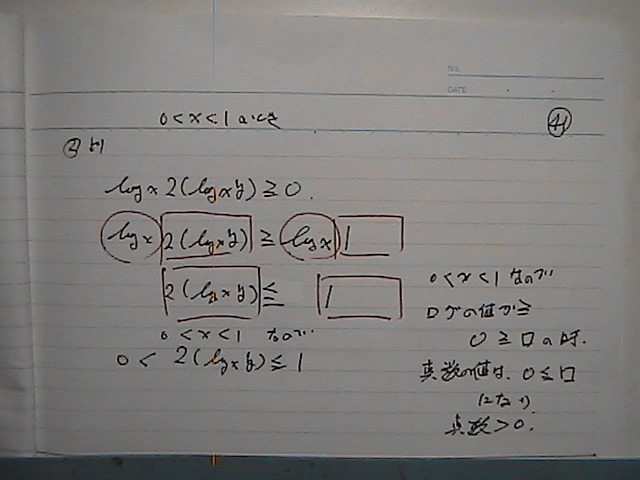 No.
DATE
0<x<1のとき
④1
②より
log x 2(log x y) ≧ 0.
log x 2(log x y) ≧ log x 1
2(log x y) ≦ 1
0<x<1 なので
0 < 2(log x y) ≦ 1
0<x<1 なので
ログの値が≧
0 ≧ □の時.
真数の値は、0≦□
になり
真数>0.